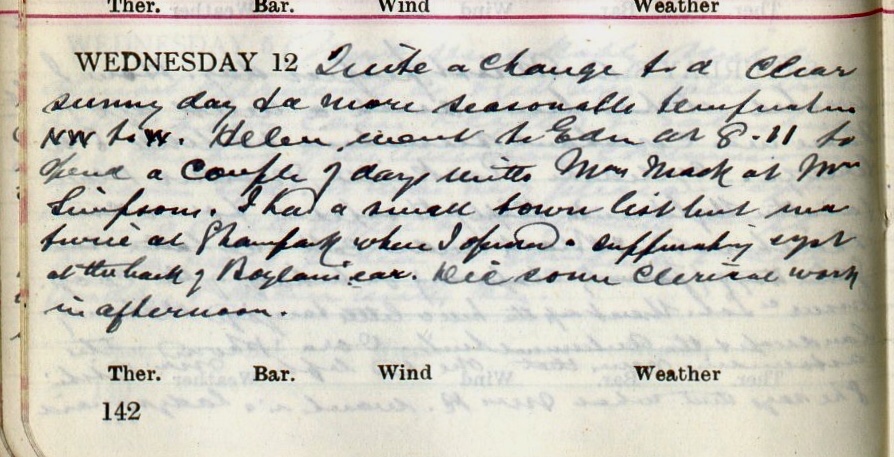 Ther. Bar. Wind Weather
WEDNESDAY 12 Quite a change to a clear
sunny day & a more seasonable temperature
NW to W. Helen went to Edn at 8-11 to
spend a couple of days with Mrs Mack at Mrs
Simpson. I had a small town list but was
twice at where I opened a suppurating cyst
at the back of Boylan's ear. Did some clerical work
in afternoon.
Ther. Bar. Wind Weather
142